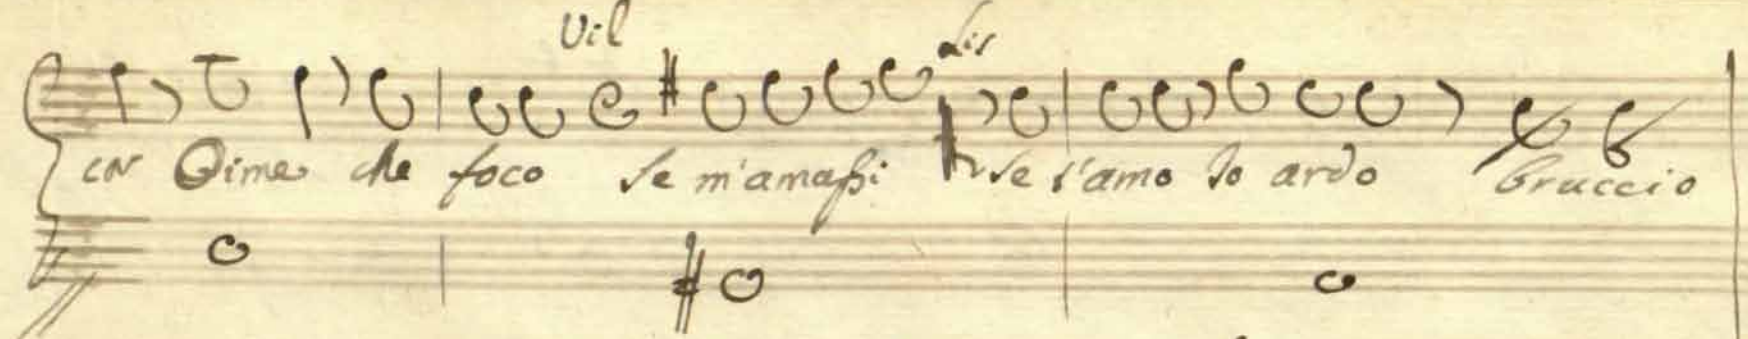 Vil Lis
Oime che foco se m'amaßi se t'amo Io ardo bruccio